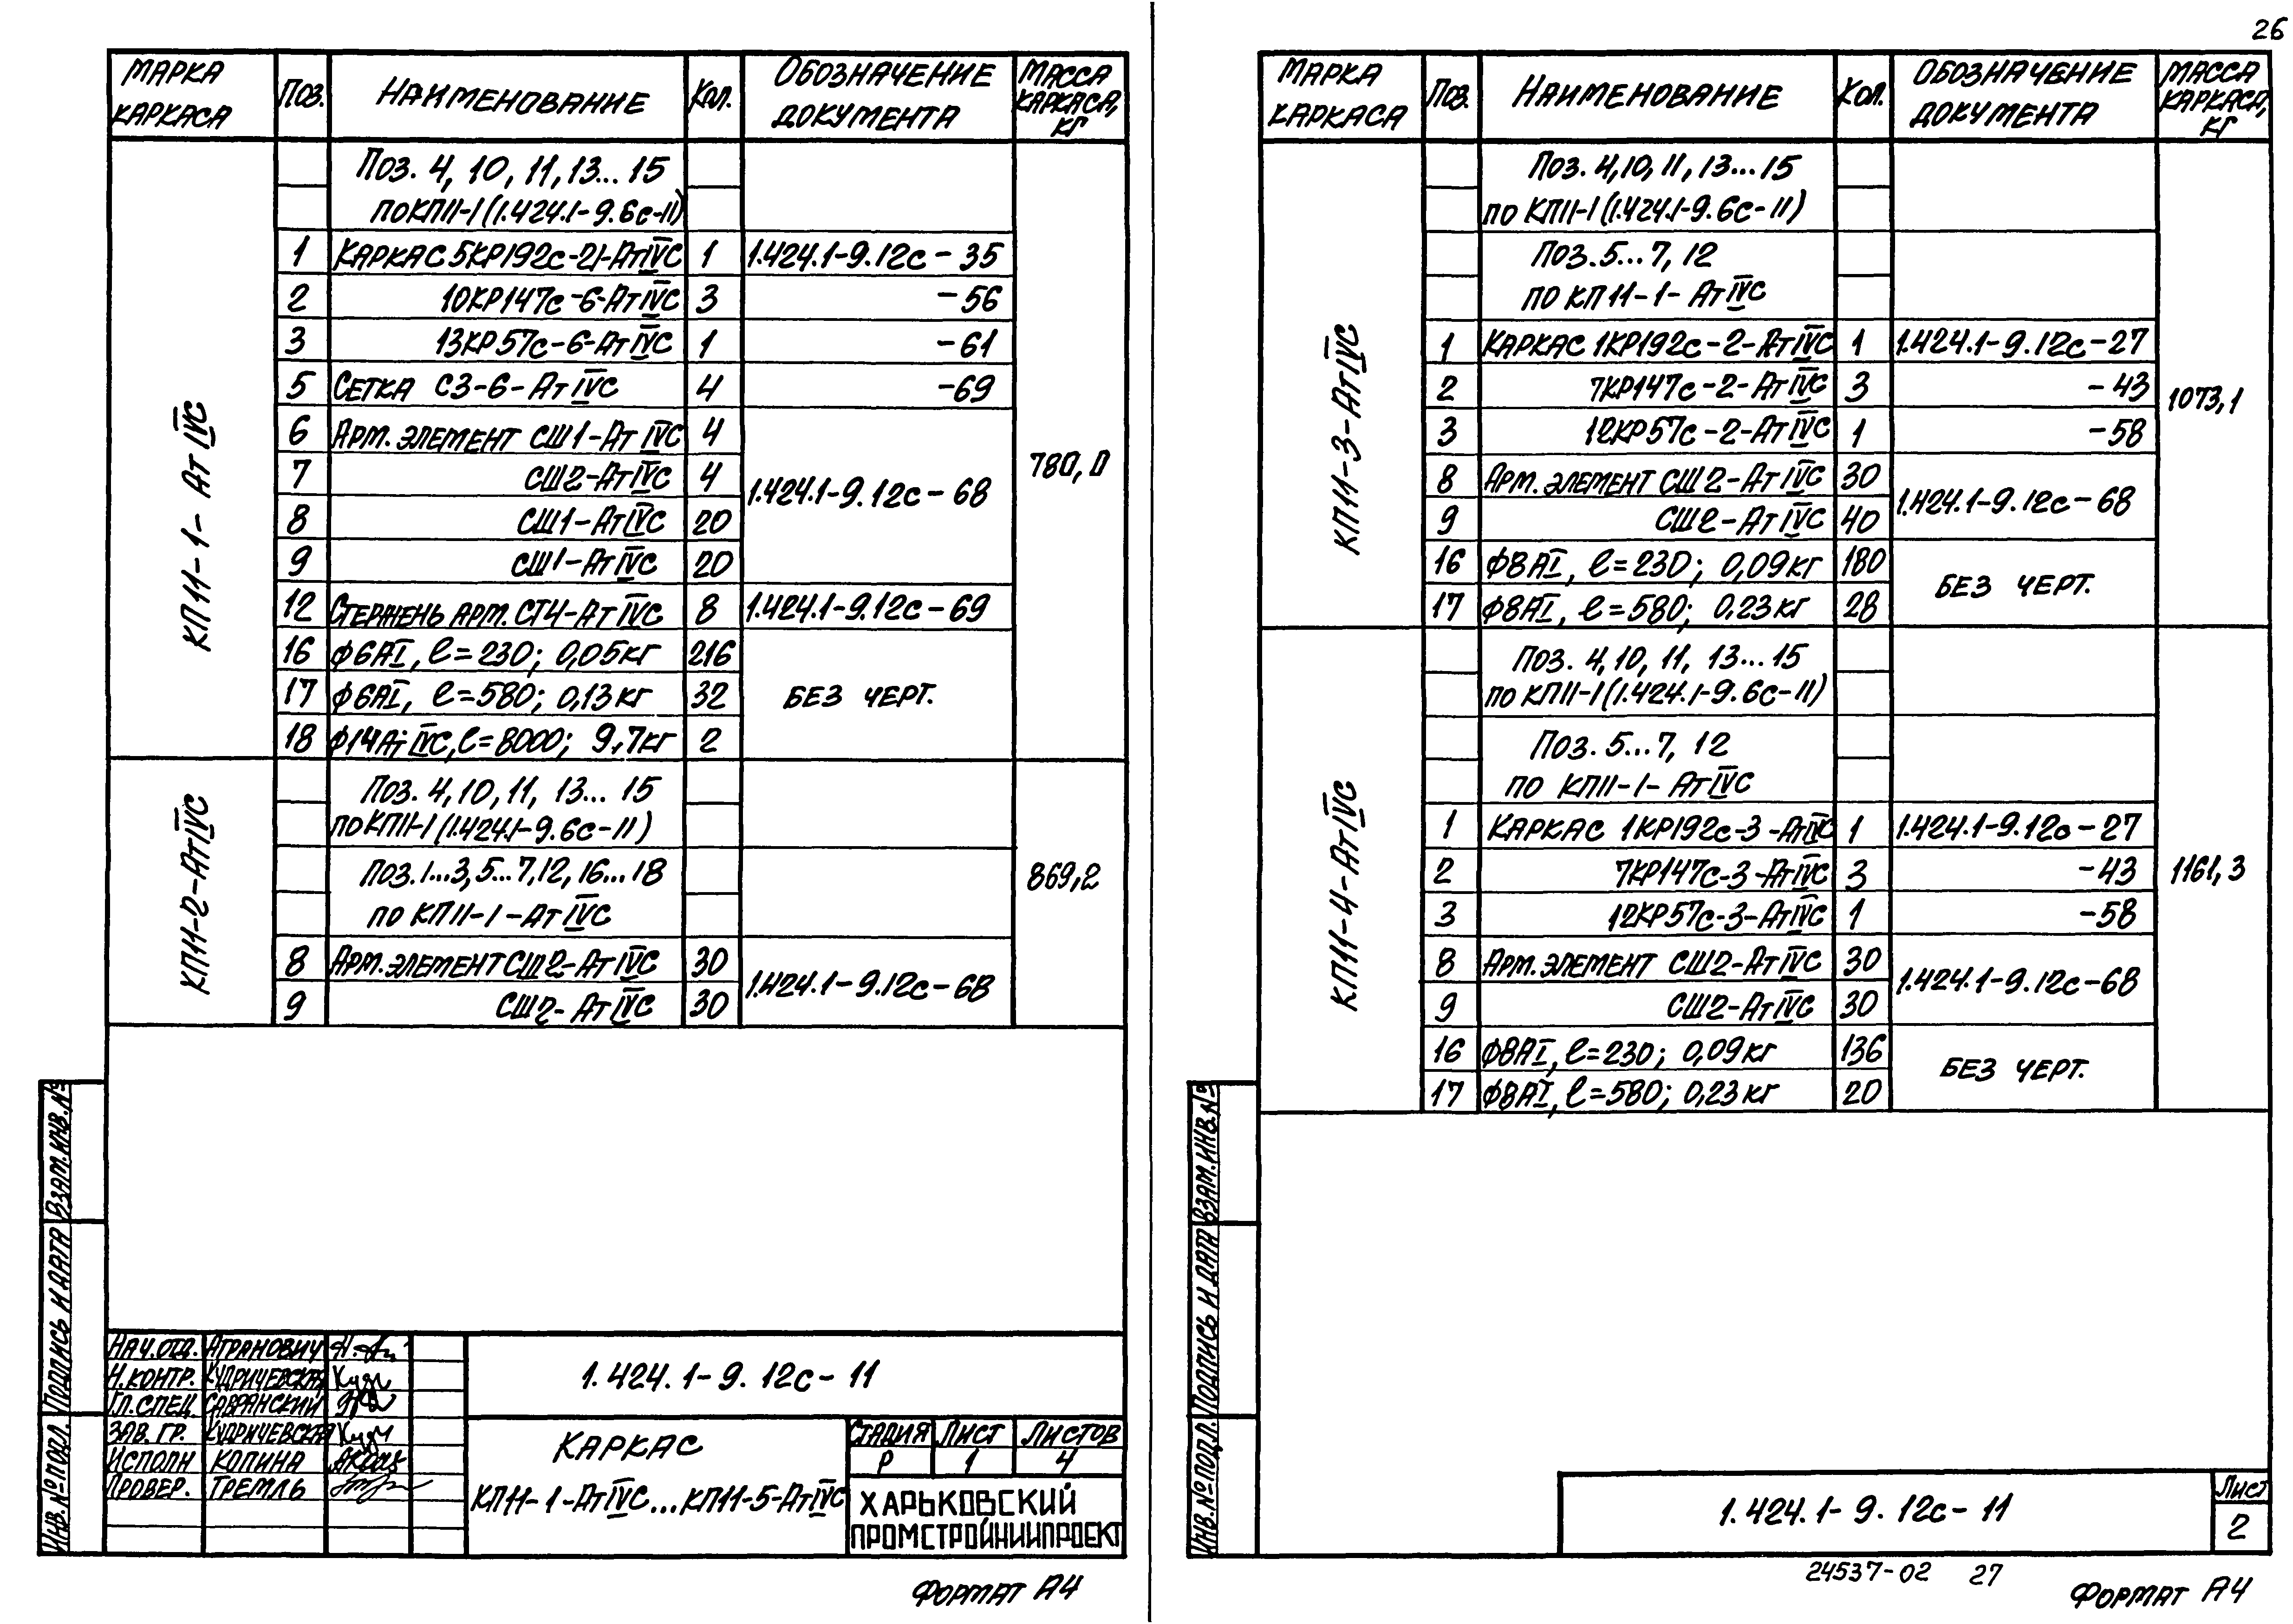 26
МАРКА КАРКАСА Поз. НАИМЕНОВАНИЕ Кол. ОБОЗНАЧЕНИЕ ДОКУМЕНТА МАССА КАРКАСА, КГ
КП11-1-АтIVС
780,0
Поз. 4, 10, 11, 13...15
по КП11-1 (1.424.1-9.6с-11)
1 КАРКАС 5КР192с-21-АтIVС 1 1.424.1-9.12с-35
2 10КР147с-6-АтIVС 3 -56
3 13КР57с-6-АтIVС 1 -61
5 СЕТКА С3-6-АтIVС 4 -69
6 АРМ. ЭЛЕМЕНТ СШ1-АтIVС 4
7 СШ2-АтIVС 4
1.424.1-9.12с-68
8 СШ1-АтIVС 20
9 СШ1-АтIVС 20
12 СТЕРЖЕНЬ АРМ. СТ4-АтIVС 8 1.424.1-9.12с-69
16 ф6АI, l=230; 0,05кг 216
17 ф6АI, l=580; 0,13кг 32 БЕЗ ЧЕРТ.
18 ф14АтIVС, l=8000; 9,7кг 2
КП11-2-АтIVС
869,2
Поз. 4, 10, 11, 13...15
по КП11-1 (1.424.1-9.6с-11)
Поз. 1...3, 5...7, 12, 16...18
по КП11-1-АтIVС
8 АРМ. ЭЛЕМЕНТ СШ2-АтIVС 30
1.424.1-9.12с-68
9 СШ2-АтIVС 30
ВЗАМ.ИНВ.№
ПОДПИСЬ И ДАТА
ИНВ.№ПОДЛ.
НАЧ.ОТД. АГРАНОВИЧ
Н.КОНТР. КУДРИЧЕВСКАЯ
ГЛ.СПЕЦ. САВРАНСКИЙ
ЗАВ. ГР. КУДРИЧЕВСКАЯ
ИСПОЛН КОПИНА
ПРОВЕР. ГРЕМЛЬ
1.424.1-9.12с-11
КАРКАС
КП11-1-АтIVС...КП11-5-АтIVС
СТАДИЯ ЛИСТ ЛИСТОВ
Р 1 4
ХАРЬКОВСКИЙ
ПРОМСТРОЙНИИПРОЕКТ
ФОРМАТ А4
МАРКА КАРКАСА Поз. НАИМЕНОВАНИЕ Кол. ОБОЗНАЧЕНИЕ ДОКУМЕНТА МАССА КАРКАСА, КГ
КП11-3-АтIVС
1073,1
Поз. 4, 10, 11, 13...15
по КП11-1 (1.424.1-9.6с-11)
Поз. 5...7, 12
по КП11-1-АтIVС
1 КАРКАС 1КР192с-2-АтIVС 1 1.424.1-9.12с-27
2 7КР147с-2-АтIVС 3 -43
3 12КР57с-2-АтIVС 1 -58
8 АРМ. ЭЛЕМЕНТ СШ2-АтIVС 30
1.424.1-9.12с-68
9 СШ2-АтIVС 40
16 ф8АI, l=230; 0,09кг 180
БЕЗ ЧЕРТ.
17 ф8АI, l=580; 0,23кг 28
КП11-4-АтIVС
1161,3
Поз. 4, 10, 11, 13...15
по КП11-1 (1.424.1-9.6с-11)
Поз. 5...7, 12
по КП11-1-АтIVС
1 КАРКАС 1КР192с-3-АтIVС 1 1.424.1-9.12с-27
2 7КР147с-3-АтIVС 3 -43
3 12КР57с-3-АтIVС 1 -58
8 АРМ. ЭЛЕМЕНТ СШ2-АтIVС 30
1.424.1-9.12с-68
9 СШ2-АтIVС 30
16 ф8АI, l=230; 0,09кг 136
БЕЗ ЧЕРТ.
17 ф8АI, l=580; 0,23кг 20
ВЗАМ.ИНВ.№
ПОДПИСЬ И ДАТА
ИНВ.№ПОДЛ.
1.424.1-9.12с-11
ЛИСТ
2
24537-02 27
ФОРМАТ А4